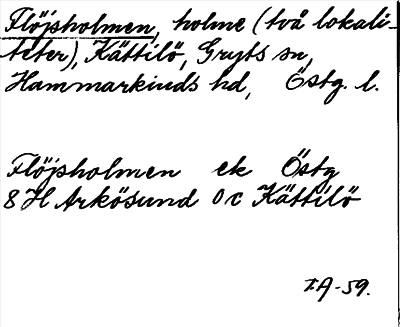 Flöjsholmen, holme (två lokali-
teter), Kättilö, Gryts sn,
Hammarkinds hd, Östg. l.
Flöjsholmen ek Östg
8 H Arkösund 0 c Kättilö
IA-59.